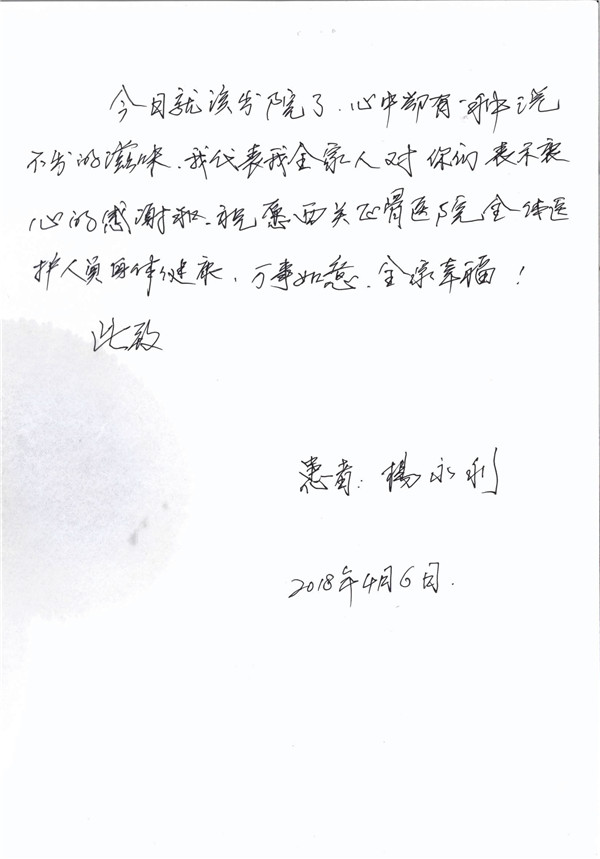 今日就该出院了、心中却有一种说
不出的滋味、我代表我全家人对你们表示衷
心的感谢和、祝愿西关正骨医院全体医
护人员身体健康、万事如意、全家幸福！
此致
患者：杨永利
2018年4月6日.